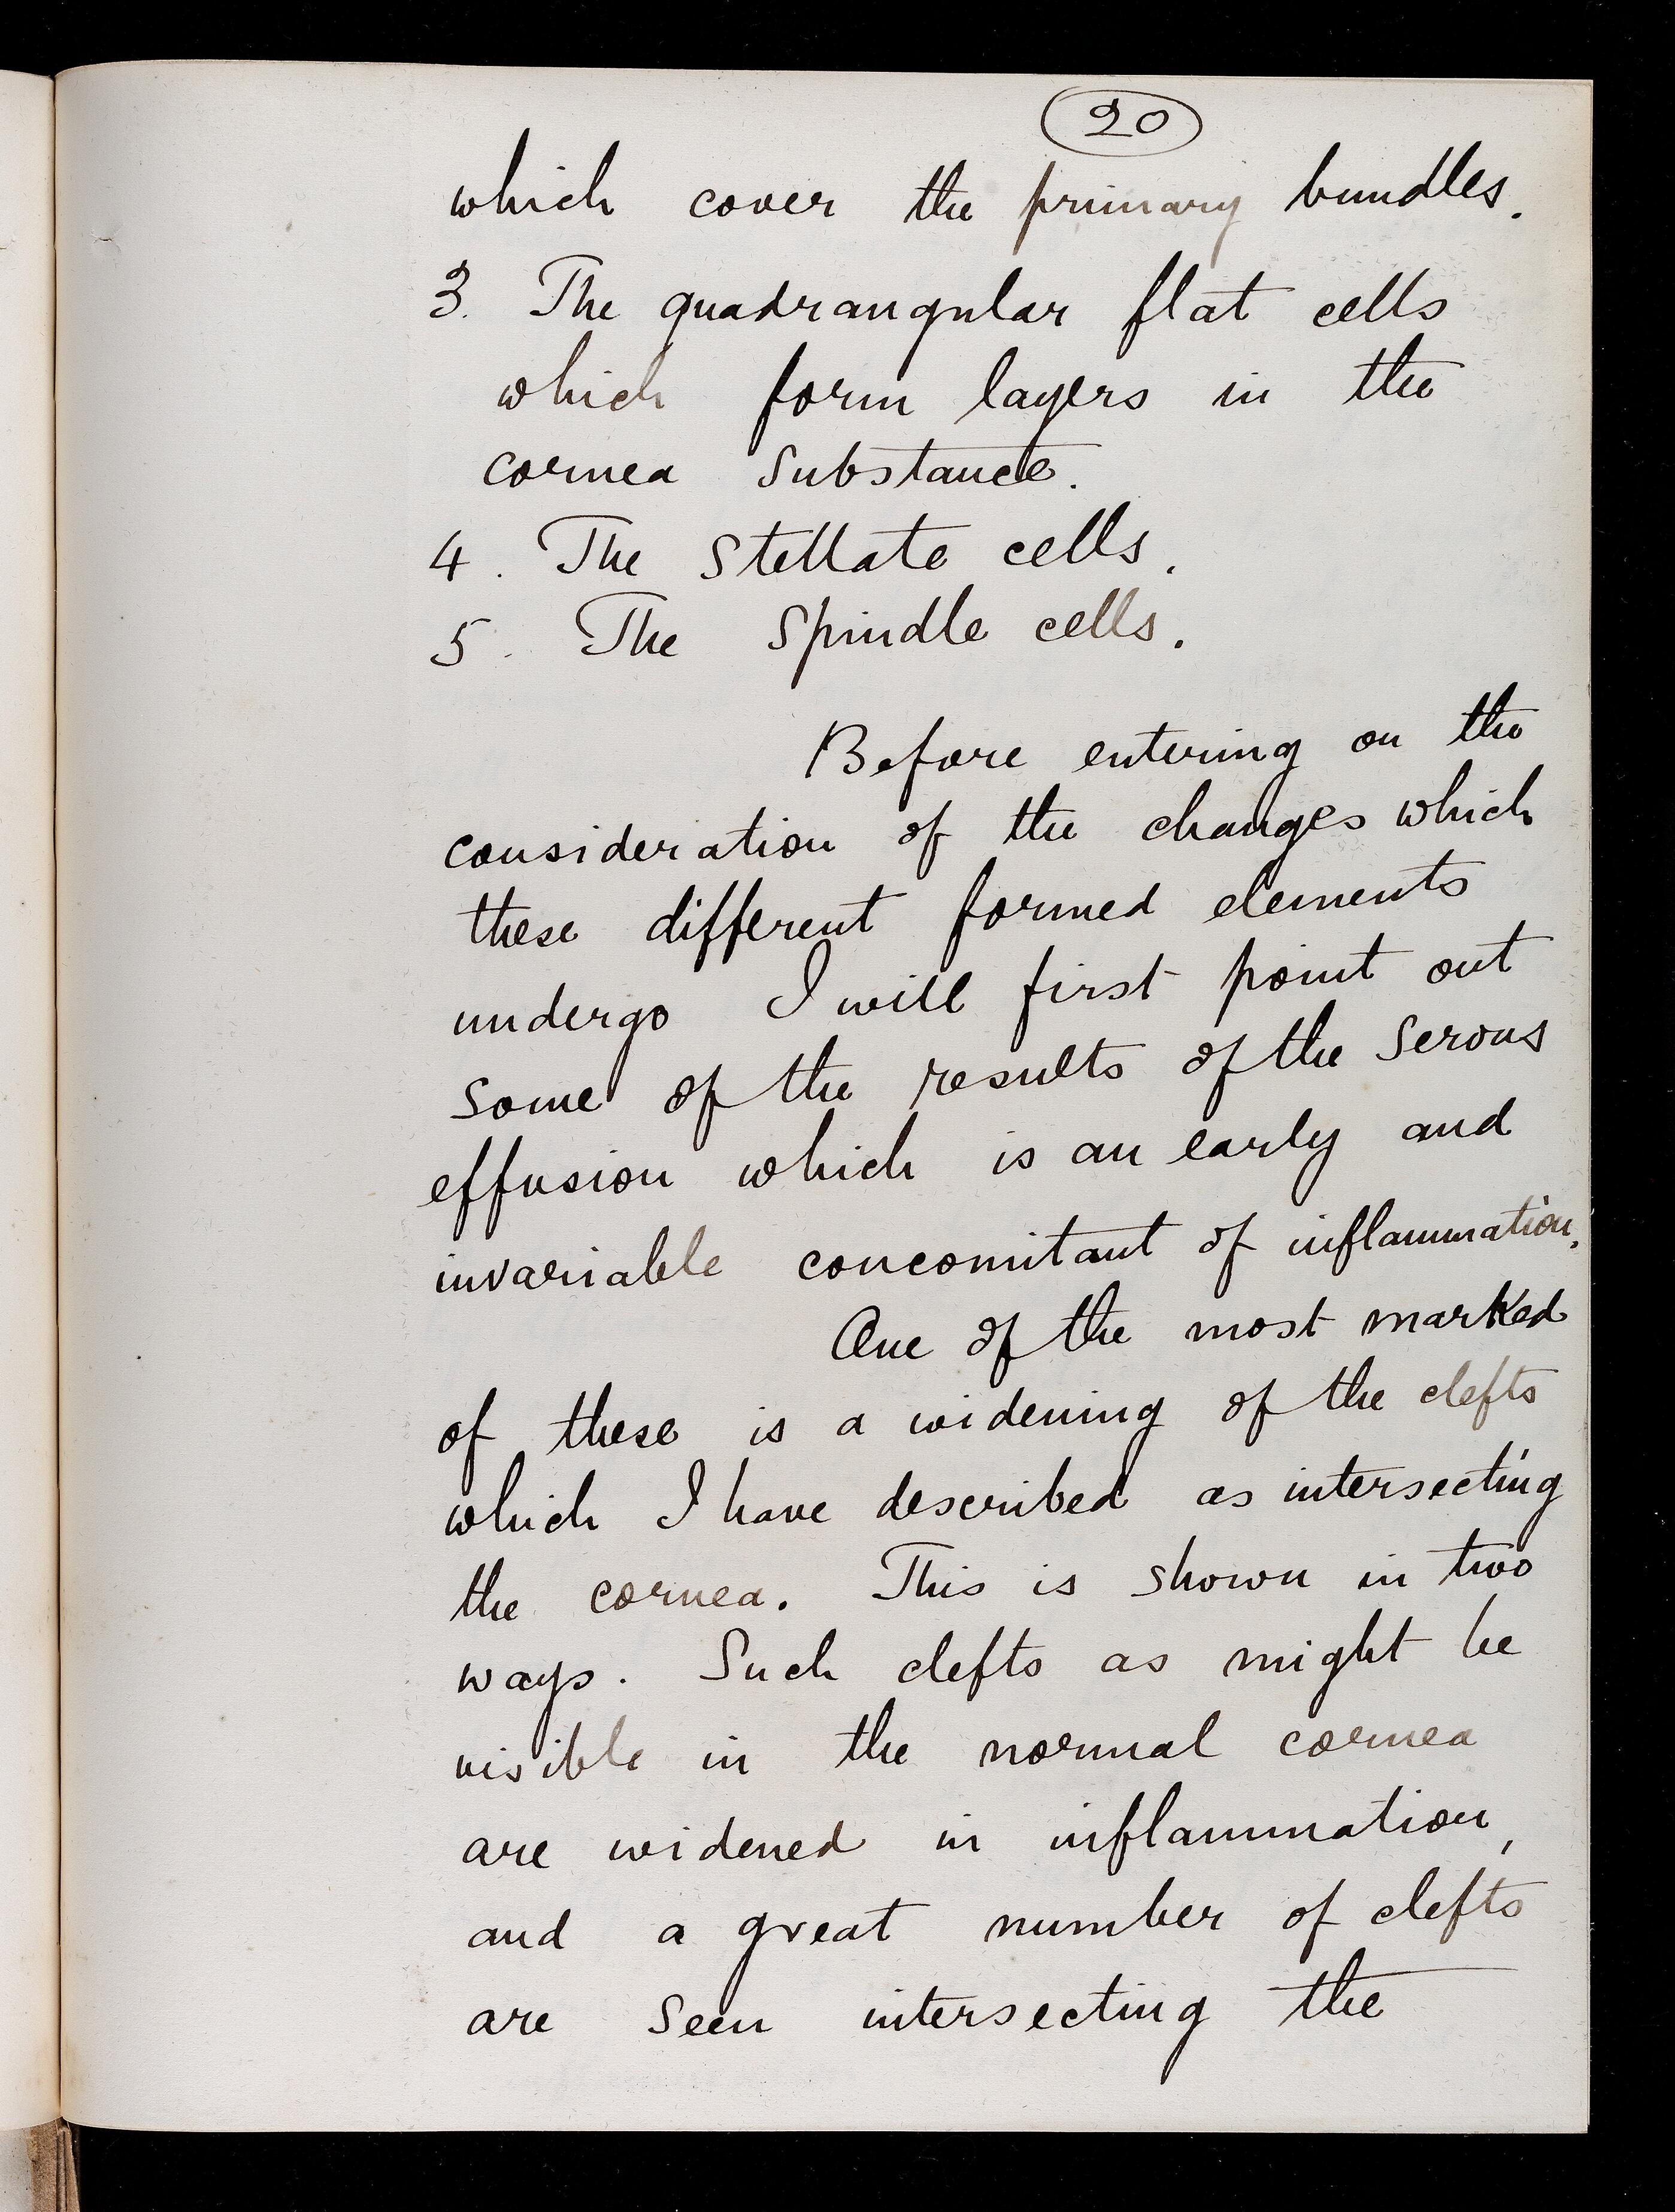 20
which cover the primary bundles.
3. The quadrangular flat cells
which form layers in the
cornea substance.
4. The Stellate cells.
5. The Spindle cells.
Before entering on the
consideration of the changes which
these different formed elements
undergo I will first point out
some of the results of the serous
effusion which is an early and
invariable concomitant of inflammation.
One of the most marked
of these is a widening of the clefts
which I have described as intersecting
the cornea. This is shown in two
ways. Such clefts as might be
visible in the normal cornea
are widened in inflammation,
and a great number of clefts
are seen intersecting the